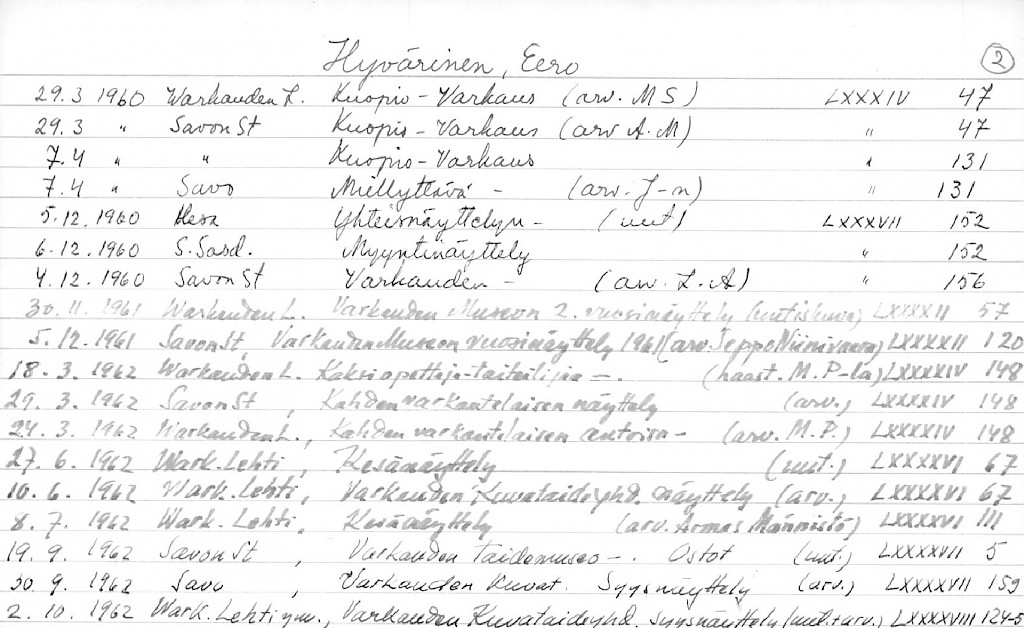 Hyvärinen, Eero 2
29.3 1960 Warkauden L. Kuopio - Varkaus (arv. M S) LXXXIV 47
29.3 " Savon St Kuopio - Varkaus (arv A.M) " 47
7.4 " " Kuopio - Varkaus " 131
7.4 " Savo Miellyttävä - (arv. J-n) " 131
5.12.1960 Hesa Yhteisnäyttelyn - (uut) LXXXVII 152
6.12.1960 S.Sosd. Myyntinäyttely " 152
4.12.1960 Savon St Varkauden - (arv. L.A) " 156
30.11.1961 Warkauden L. Varkauden Museon 2. vuosinäyttely (uutiskuva) LXXXXII 57
5.12.1961 Savon St, Varkauden Museon vuosinäyttely 1961 (arv. Seppo Niinivaara) LXXXXII 120
18.3.1962 Warkauden L. Kaksi opettaja-taiteilijaa -. (haast. M.P-la) LXXXXIV 148
29.3.1962 Savon St, Kahden varkautelaisen näyttely (arv.) LXXXXIV 148
24.3.1962 Warkauden L., Kahden varkautelaisen antoisa - (arv. M.P.) LXXXXIV 148
27.6.1962 Wark. Lehti, Kesänäyttely (uut.) LXXXXVI 67
10.6.1962 Wark. Lehti, Varkauden Kuvataideyhd. näyttely (arv.) LXXXXVI 67
8.7.1962 Wark. Lehti, Kesänäyttely (arv. Armas Männistö) LXXXXVI 111
19.9.1962 Savon St, Varkauden taidemuseo -. Ostot (uut.) LXXXXVII 5
30.9.1962 Savo, Varkauden Kuvat. Syysnäyttely (arv.) LXXXXVII 159
2.10.1962 Wark. Lehti ym., Varkauden Kuvataideyhd. syysnäyttely (uut.+arv.) LXXXXVIII 124-5